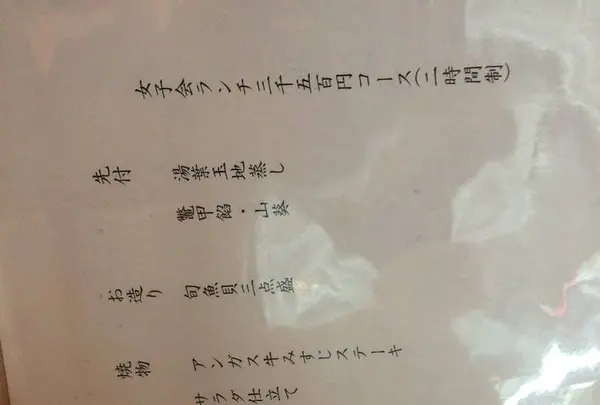 女子会ランチ三千五百円コース(二時間制)
先付 湯葉玉地蒸し
鼈甲餡・山葵
お造り 旬魚貝三点盛
焼物 アンガス牛みすじステーキ
サラダ仕立て